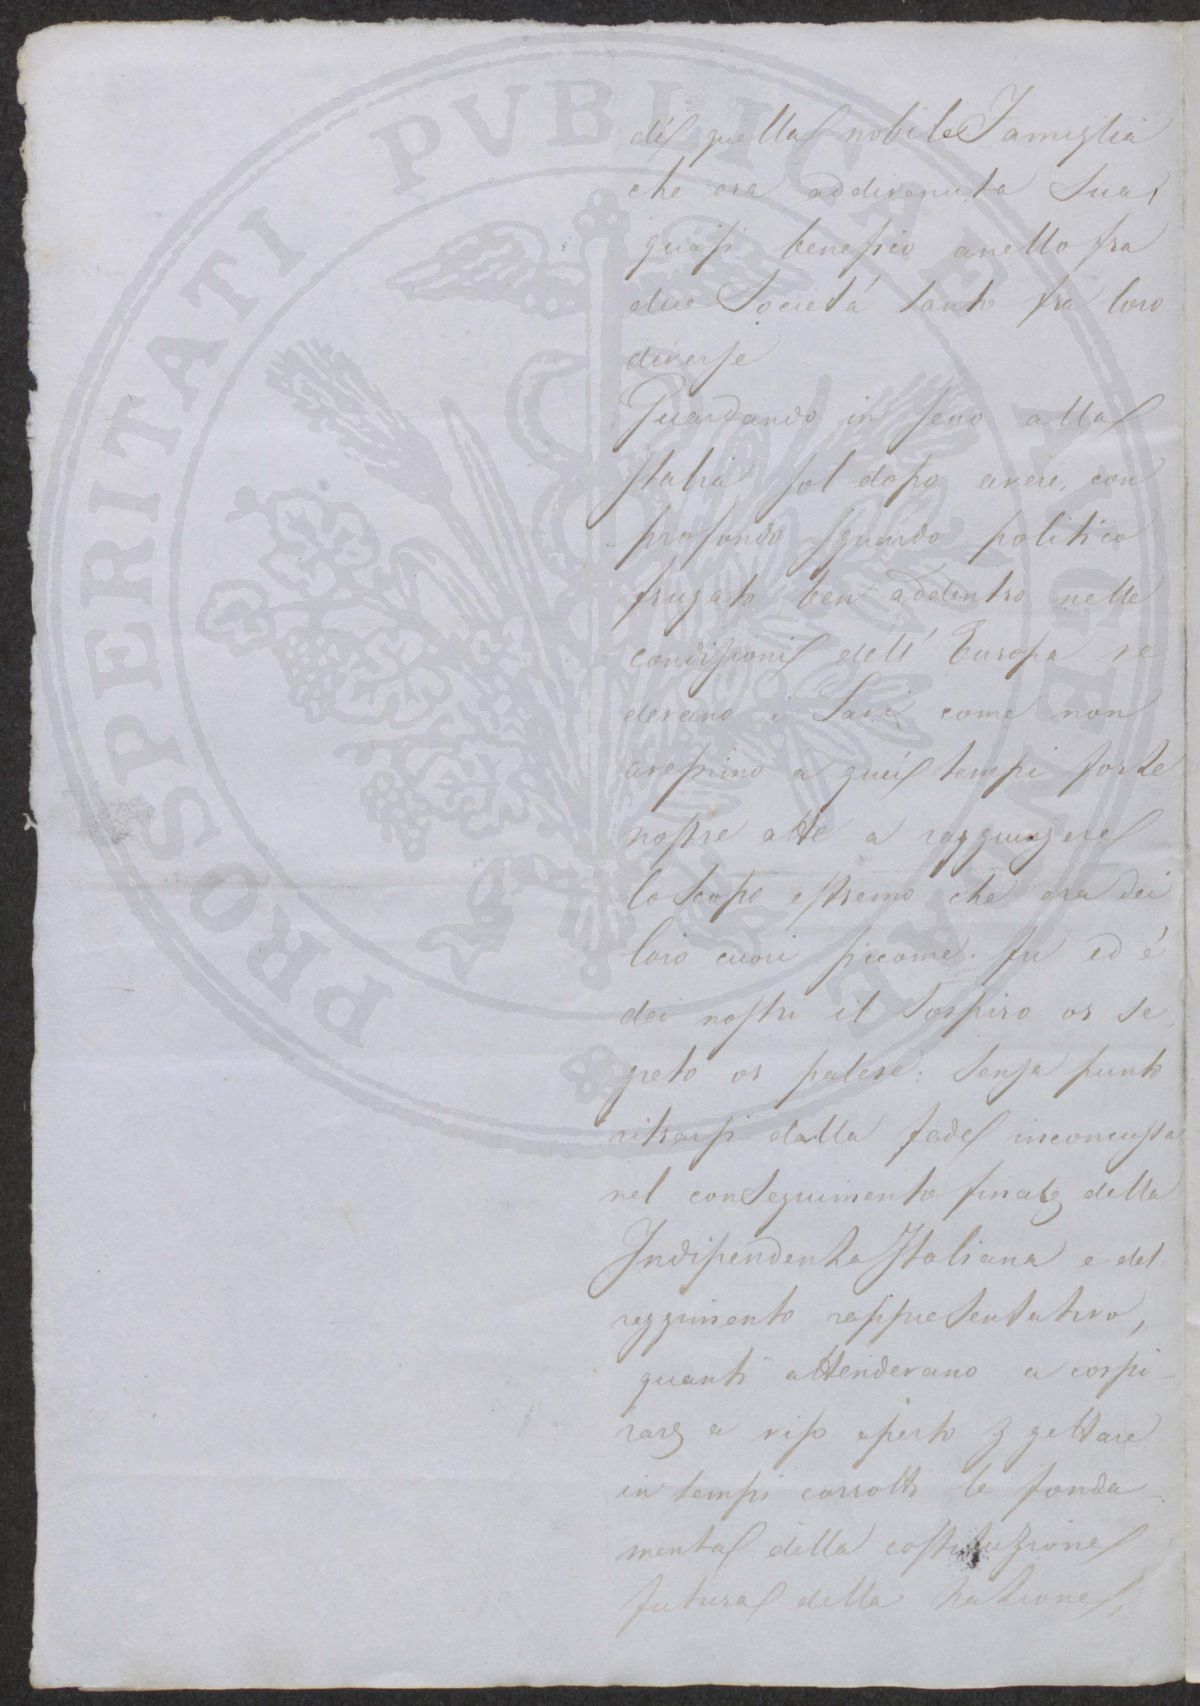 di quella nobile Famiglia
che era addivenuta sua,
quasi benefico anello fra
due Società tanto fra loro
diverse
Guardando in seno alla
Italia sol dopo avere, con
profondo sguardo politico
frugato ben addentro nelle
condizioni dell' Europa ve
devano i Savi come non
avessimo a quei tempi forze
nostre atte a raggiugere
lo scopo estremo che era dei
loro cuori siccome fu ed é
dei nostri il sospiro or se_
greto or palese: senza punto
ritrarsi dalla fede inconcussa
nel conseguimento finale della
Indipendenza Italiana e del
reggimento rappresentativo,
quanti attendevano a cospi_
rare a viso aperto gettare
in tempi corrotti le fonda_
menta della costituzione
futura della Nazione,
PROSPERITATI PVBLICAE AVGENDAE